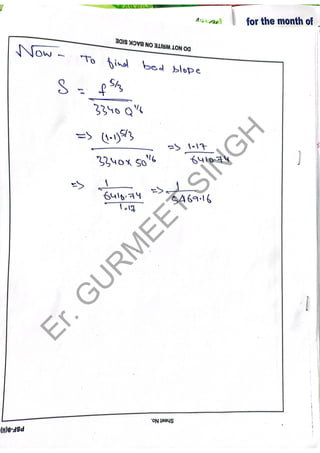 for the month of
DO NOT WRITE ON BACK SIDE
Now - To find bed slope
S = f^5/3
3340 Q^1/6
=> (1.1)^5/3
3340 x 50^1/6
=> 1.17
6410.74
=> 1
6410.74
1.17
=> 1
5469.16
Er. GURMEET SINGH
Sheet No.
PSF-8(ii)